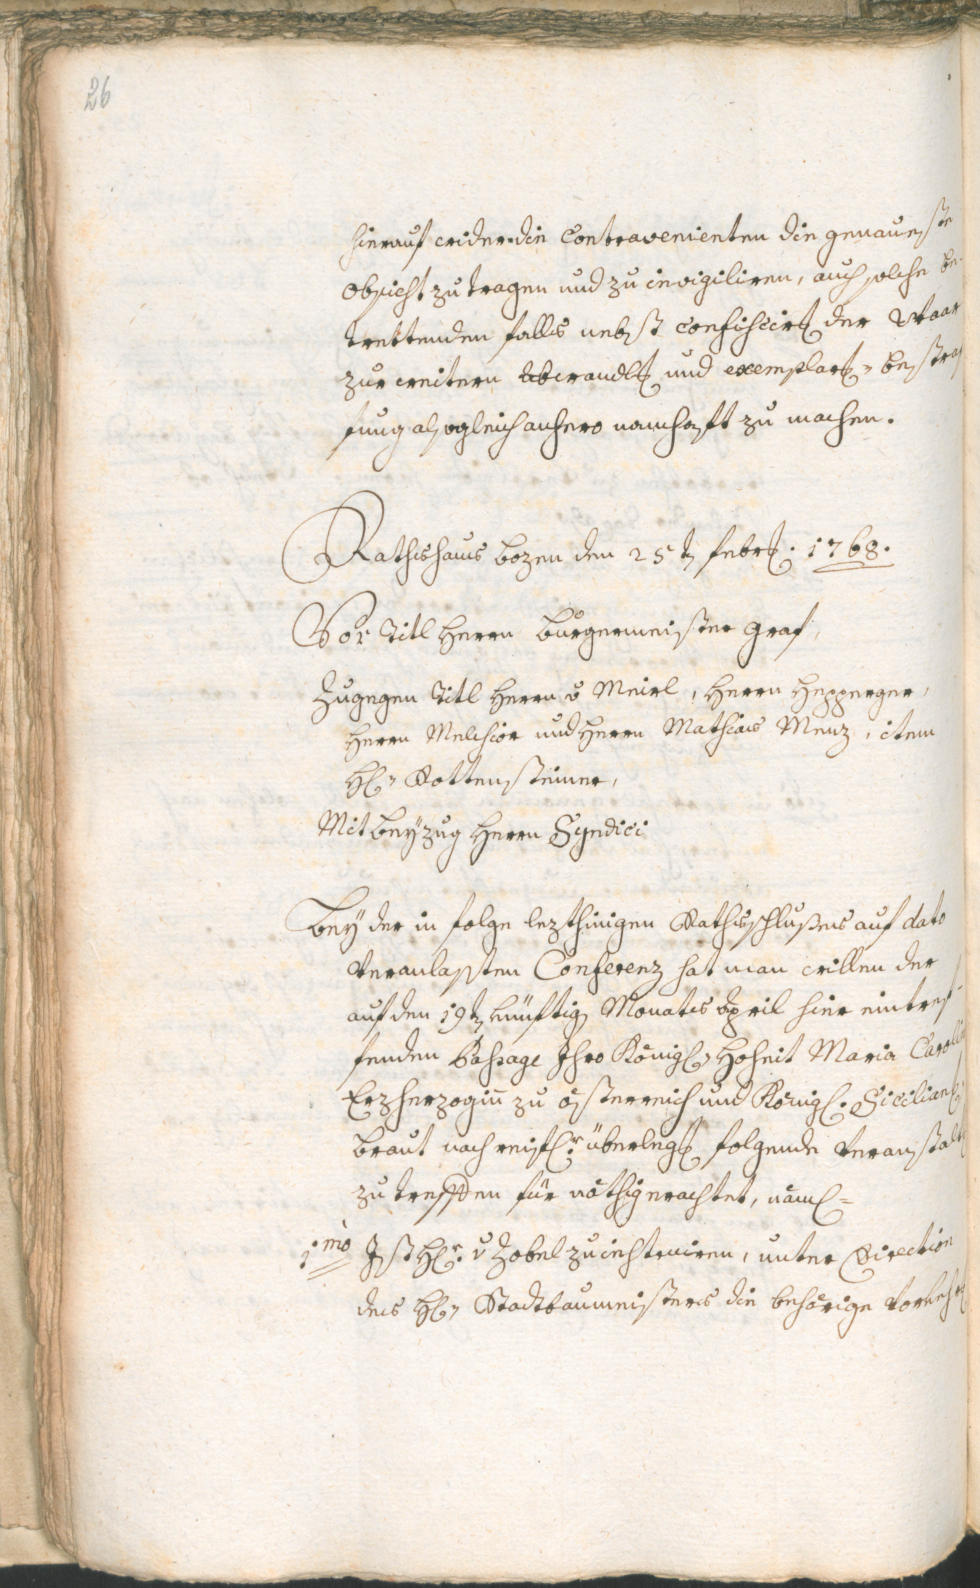 26
hierauf wider die Contravenienten die genaueste
obsicht zu tragen und zu invigiliren, auch solche be-
trettenden falls nebst confiscirg der Waar
zur weitern abwandlg und exemplarg. bestraf
fung alsogleich anhero namhaft zu machen.
Rathshaus bozen den 25tn febrg. 1768.
Vor Titl herrn burgermeister Graf,
Zugegen Titl herrn v Meirl, herrn hepperger,
herrn Melchior und herrn Mathias Menz, item
hl. Rottensteiner,
Mit beÿzug herrn Syndici
Beÿ der in folge lezthinigen Rathsschlußes auf dato
veranlaßten Conferenz hat man willen der
auf den 19tn künftig Monats April hier eintref-
fenden Passage Ihro Königl. Hoheit Maria Caroli
Erzherzogin zu österreich und Königl. Siciliani
braut nach reifl.r überlegg folgende veranstalt
zu treffen für nöthig erachtet, näml=
1.mo Ist hl.r v Zobel zu instruiren, unter Direction
des hl. Stadtbaumeisters die behörige Vorkehr